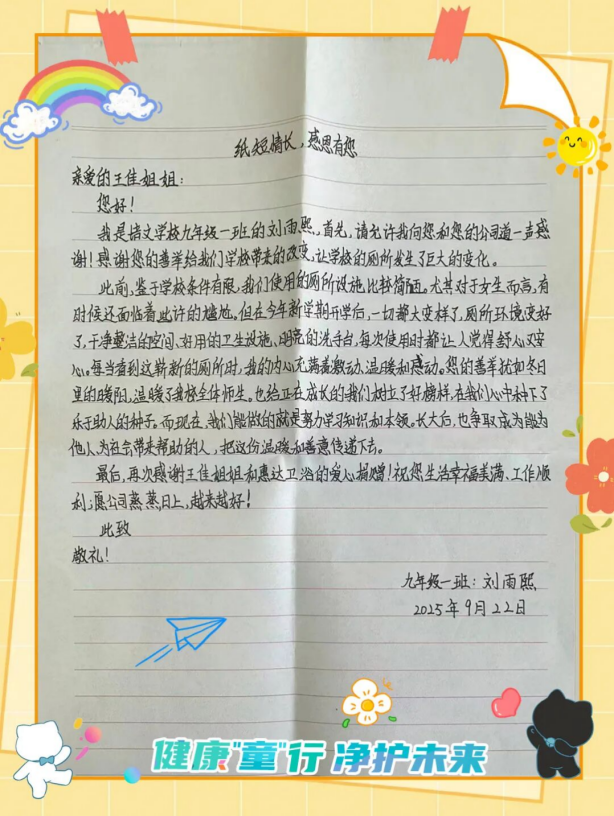 纸短情长，感恩有您
亲爱的王佳姐姐：
您好！
我是培文学校九年级一班的刘雨熙，首先，请允许我向您和您的公司道一声感
谢！感谢您的善举给我们学校带来的改变，让学校的厕所发生了巨大的变化。
此前，鉴于学校条件有限，我们使用的厕所设施比较简陋。尤其对于女生而言，有
时候还面临着些许的尴尬。但在今年新学期开学后，一切都大变样了，厕所环境变好
了，干净整洁的空间、好用的卫生设施、明亮的洗手台，每次使用时都让人觉得舒心又安
心。每当看到这崭新的厕所时，我的内心充满着激动、温暖和感动。您的善举犹如冬日
里的暖阳，温暖了我校全体师生。也给正在成长的我们树立了好榜样，在我们心中种下了
乐于助人的种子。而现在，我们能做的就是努力学习知识和本领。长大后，也争取成为能为
他人、为社会带来帮助的人，把这份温暖和善意传递下去。
最后，再次感谢王佳姐姐和惠达卫浴的爱心捐赠！祝您生活幸福美满、工作顺
利；愿公司蒸蒸日上，越来越好！
此致
敬礼！
九年级一班：刘雨熙
2025年9月22日
健康"童"行 净护未来